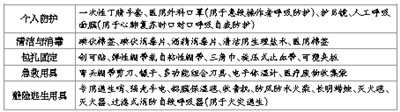 个人防护
一次性丁腈手套、医用外科口罩(用于急救操作者呼吸防护)、护目镜、人工呼吸
面膜(用于心肺复苏时口对口呼吸自救防护)
清洁与消毒
碘伏棉签、碘伏消毒片、酒精消毒片、清洁用生理盐水、医用棉签
包扎固定
创可贴、弹性绷带或自粘性绷带、三角巾、旋压式止血带、可塑夹板
急救用具
弯头绷带剪刀、镊子、多功能组合刀具、电子体温计、医疗废物收集袋
避险逃生用具
专用逃生哨、强光手电、铝膜保温毯、收音机、防风防水火柴、长明蜡烛、灭火毯、
灭火器、过滤式消防自救呼吸器(用于火灾逃生)